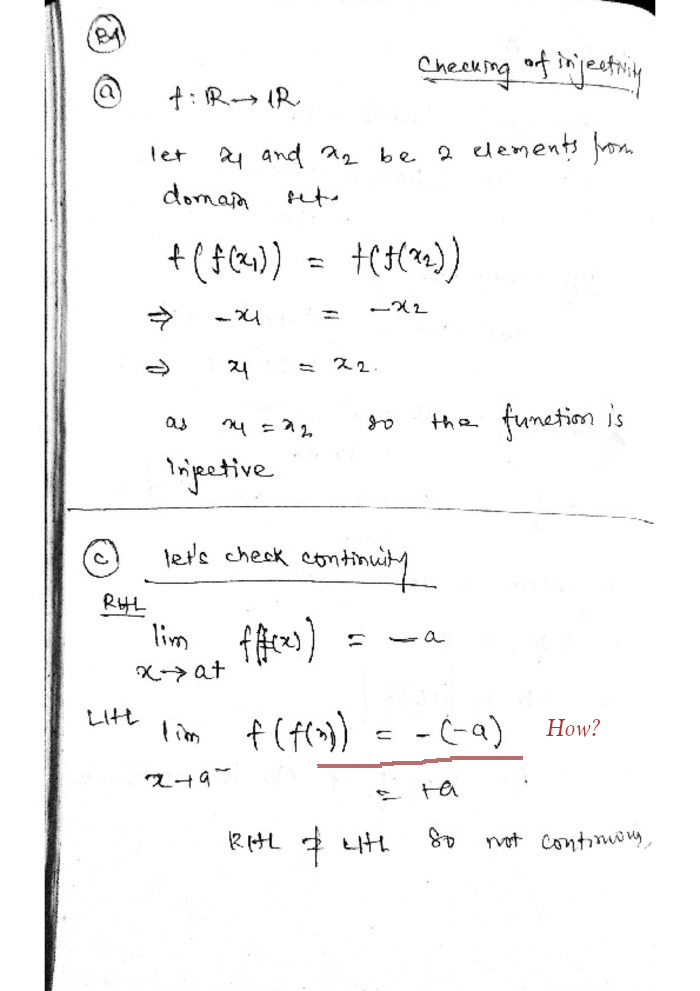 B1
Checking of injectivity
(a) f : ℝ → ℝ
let x₁ and x₂ be 2 elements from
domain set.
f(f(x₁)) = f(f(x₂))
⇒ -x₁ = -x₂
⇒ x₁ = x₂.
as x₁ = x₂ so the function is
injective
(c) let's check continuity
RHL
lim f(f(x)) = -a
x→a+
LHL lim f(f(x)) = -(-a) How?
x→a⁻
= +a
RHL ≠ LHL So not continuous,